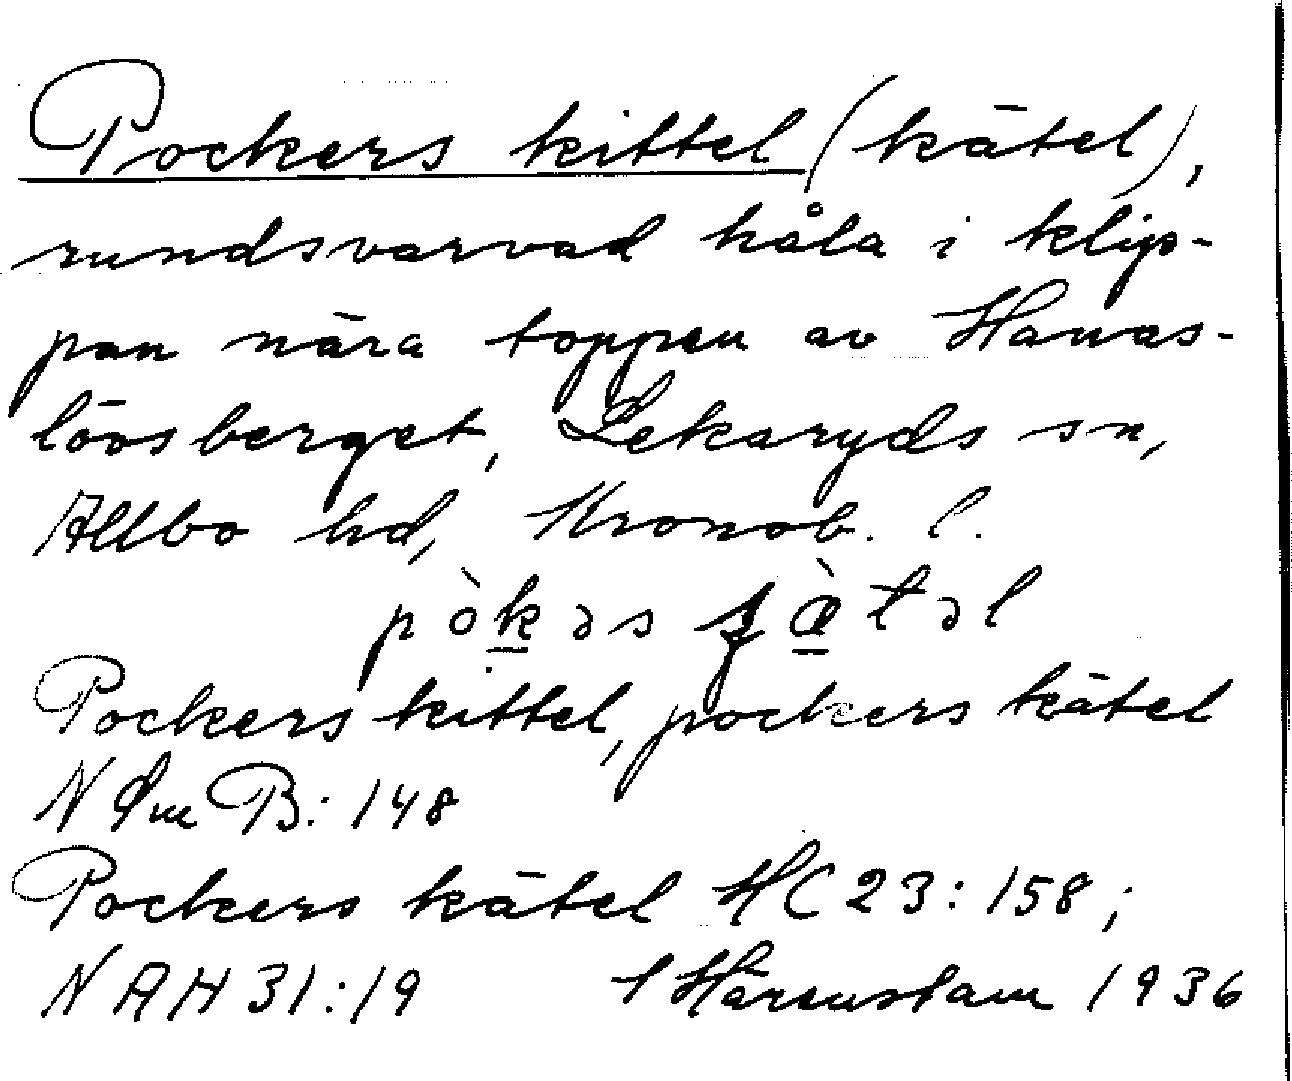 Pockers kittel (kätel),
rundsvarvad håla i klip-
pan nära toppen av Hanas-
lövsberget, Lekaryds sn,
Allbo hd, Kronob. l.
Pockers kittel, pockers kätel
N Sm B: 148
Pockers kätel HC 23: 158;
N A H 31: 19 Härenstam 1936